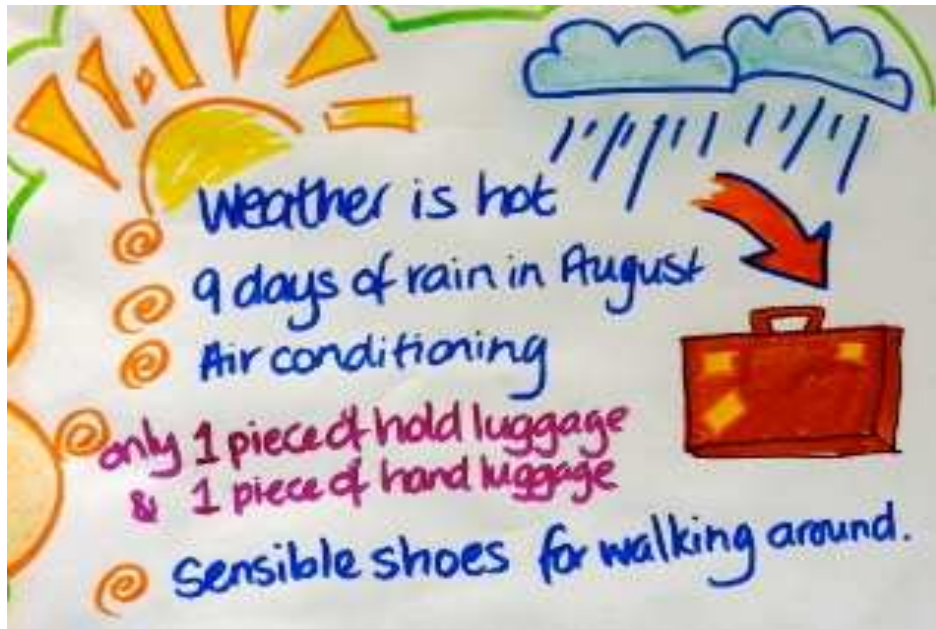 Weather is hot
9 days of rain in August
Air conditioning
only 1 piece of hold luggage
& 1 piece of hand luggage
Sensible shoes for walking around.